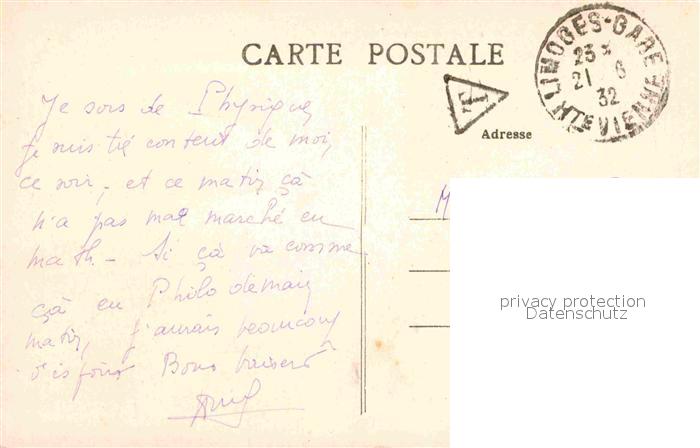 CARTE POSTALE
LIMOGES-GARE
23
21 6
32
HTE VIENNE
T
Adresse
Je sors de Physique,
je suis tié content de moi,
ce soir, et ce matin çà
n'a pas mal marché en
math - Si çà va comme
çà en Philo demain
matin, j'aurais beaucoup
d'espoir Bons baisers
M
privacy protection
Datenschutz